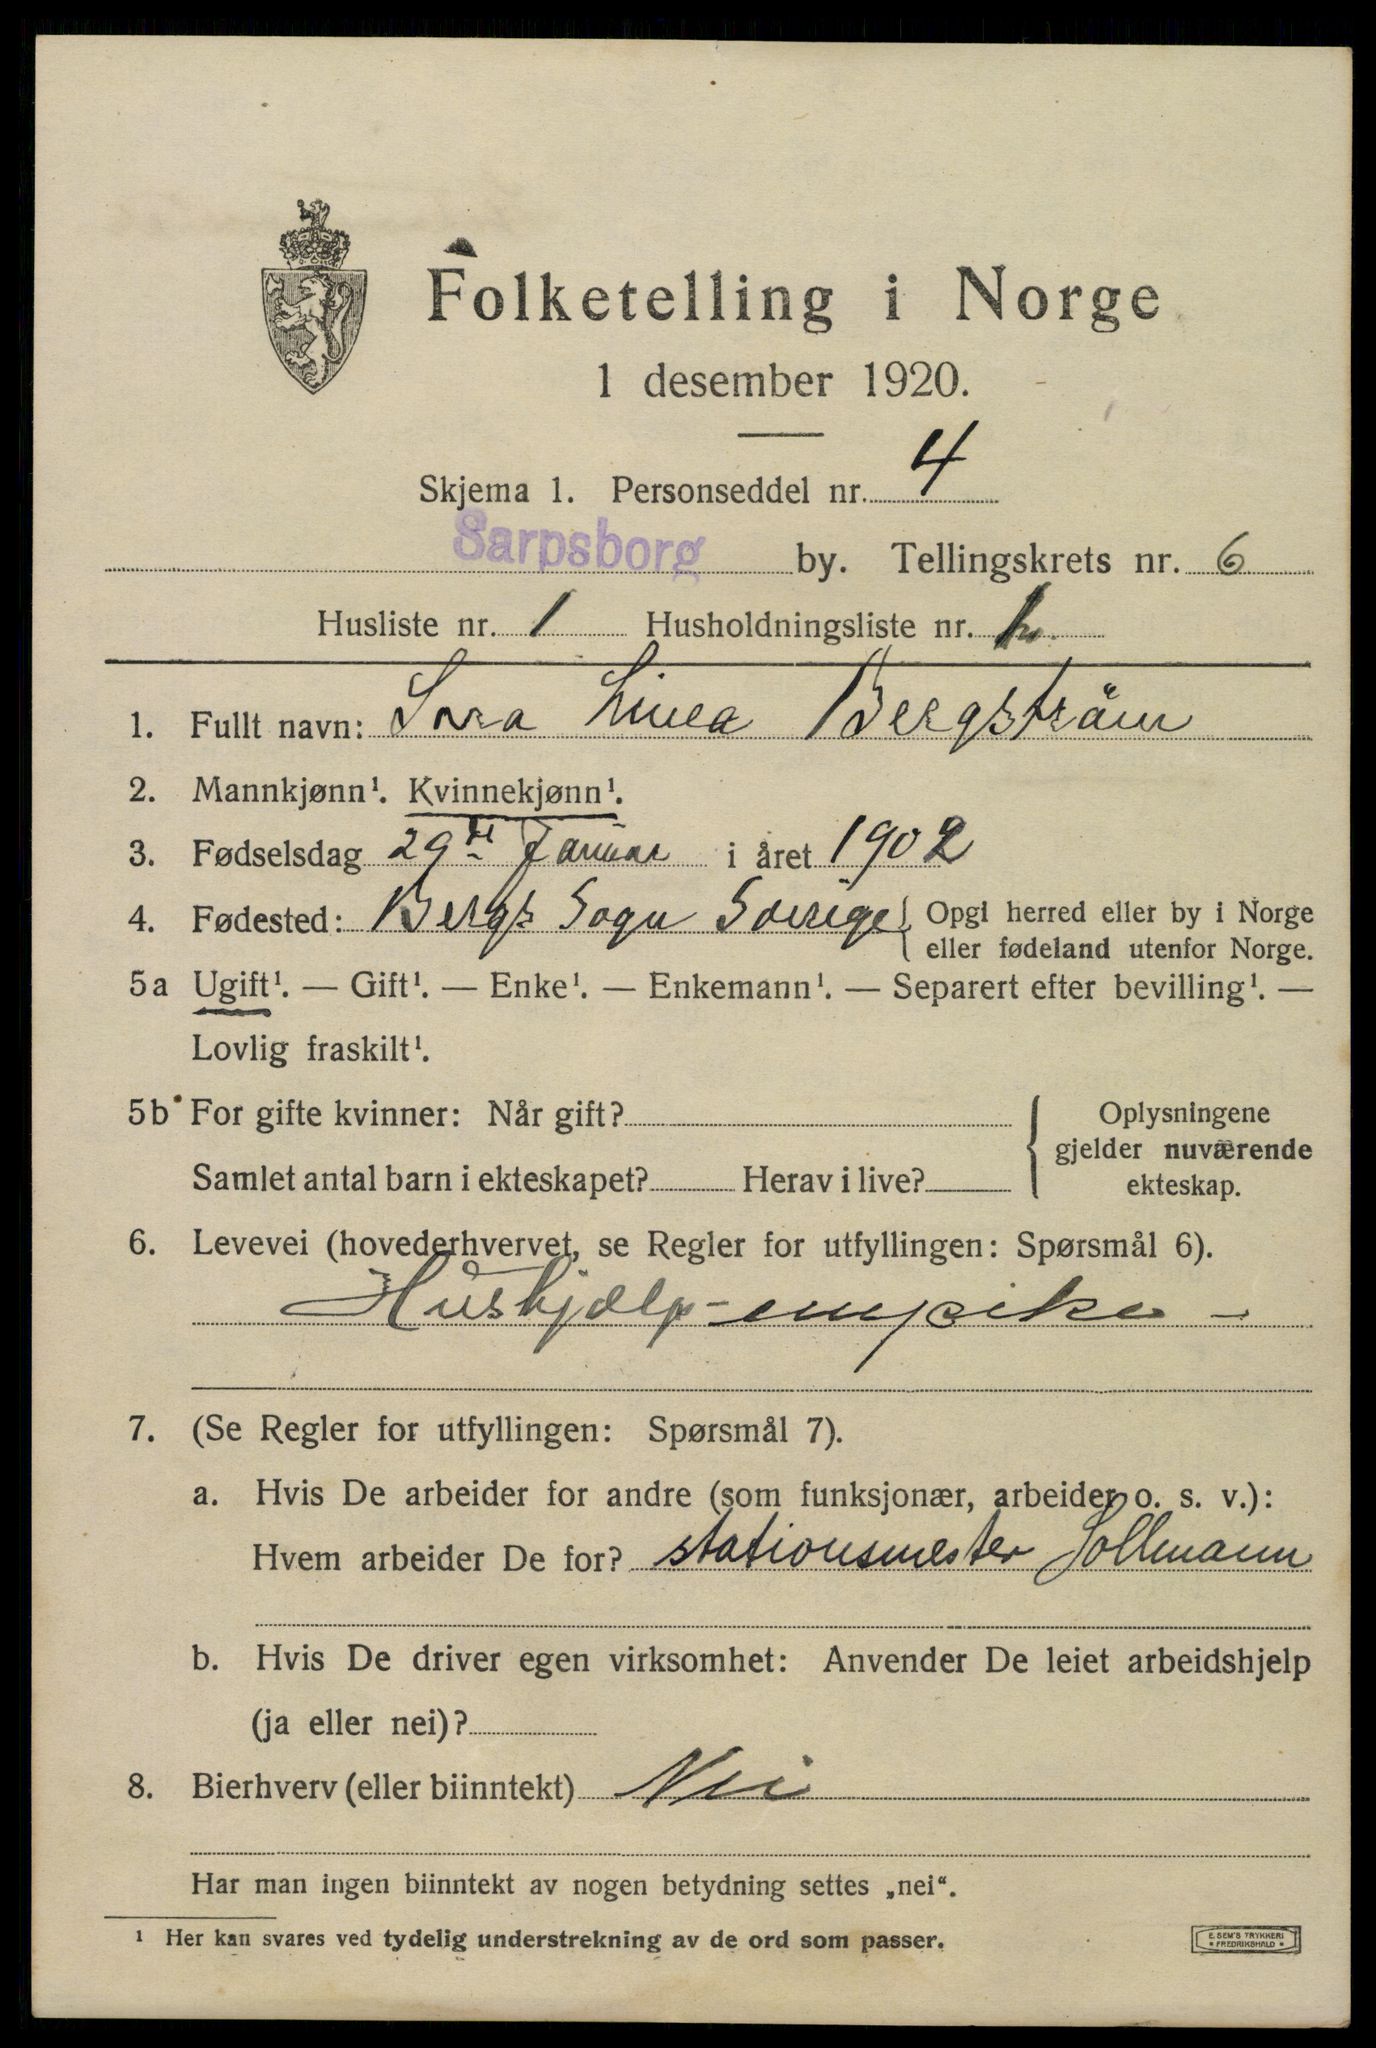 Folketelling i Norge
1 desember 1920.
Skjema 1. Personseddel nr. 4
Sarpsborg by. Tellingskrets nr. 6
Husliste nr. 1 Husholdningsliste nr. 1
1. Fullt navn: Sara Linea Bergsträm
2. Mannkjønn¹. Kvinnekjønn¹.
3. Fødselsdag 29de Januar i året 1902
4. Fødested: Bergs Sogn Sverige { Opgi herred eller by i Norge
eller fødeland utenfor Norge.
5a Ugift¹. — Gift¹. — Enke¹. — Enkemann¹. — Separert efter bevilling¹. —
Lovlig fraskilt¹.
5b For gifte kvinner: Når gift? { Oplysningene
gjelder nuværende
Samlet antal barn i ekteskapet? Herav i live? ekteskap.
6. Levevei (hovederhvervet, se Regler for utfyllingen: Spørsmål 6).
Hushjælp-
7. (Se Regler for utfyllingen: Spørsmål 7).
a. Hvis De arbeider for andre (som funksjonær, arbeider o. s. v.):
Hvem arbeider De for? stationsmester Sollmann
b. Hvis De driver egen virksomhet: Anvender De leiet arbeidshjelp
(ja eller nei)?
8. Bierhverv (eller biinntekt) Nei
Har man ingen biinntekt av nogen betydning settes „nei“.
¹ Her kan svares ved tydelig understrekning av de ord som passer.
E. SEM'S TRYKKERI
FREDRIKSHALD